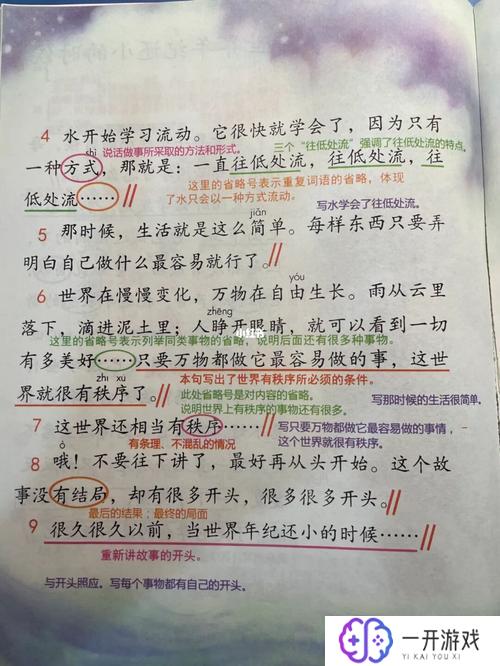 4 水开始学习流动。它很快就学会了，因为只有
shì 说话做事所采取的方法和形式。 三个“往低处流”强调了往低处流的特点。
一种方式，那就是：一直往低处流，往低处流，往
这里的省略号表示重复词语的省略，体现
低处流……
了水只会以一种方式流动。
写水学会了往低处流。
jiǎn
5 那时候，生活就是这么简单。每样东西只要弄
明白自己做什么最容易就行了。
yóu
6 世界在慢慢变化，万物在自由生长。雨从云里
zhēng
落下，滴进泥土里；人睁开眼睛，就可以看到一切
这里的省略号表示列举同类事物的省略，说明后面还有很多种事物。
有多美好……只要万物都做它最容易做的事，这世
zhì xù 本句写出了世界有秩序所必须的条件。
界就很有秩序了。
此处省略号是对内容的省略。
说明世界上有秩序的事物还有很多。
写那时候的生活很简单。
7 这世界还相当有秩序……
写只要万物都做它最容易做的事情，
这个世界就很有秩序。
ò 有条理、不混乱的情况
8 哦！不要往下讲了，最好再从头开始。这个故
事没有结局，却有很多开头，很多很多开头。
最后的结果；最终的局面
9 很久很久以前，当世界年纪还小的时候……
重新讲故事的开头。
与开头照应。写每个事物都有自己的开头。
小红书
一开游戏
YI KAI YOU XI